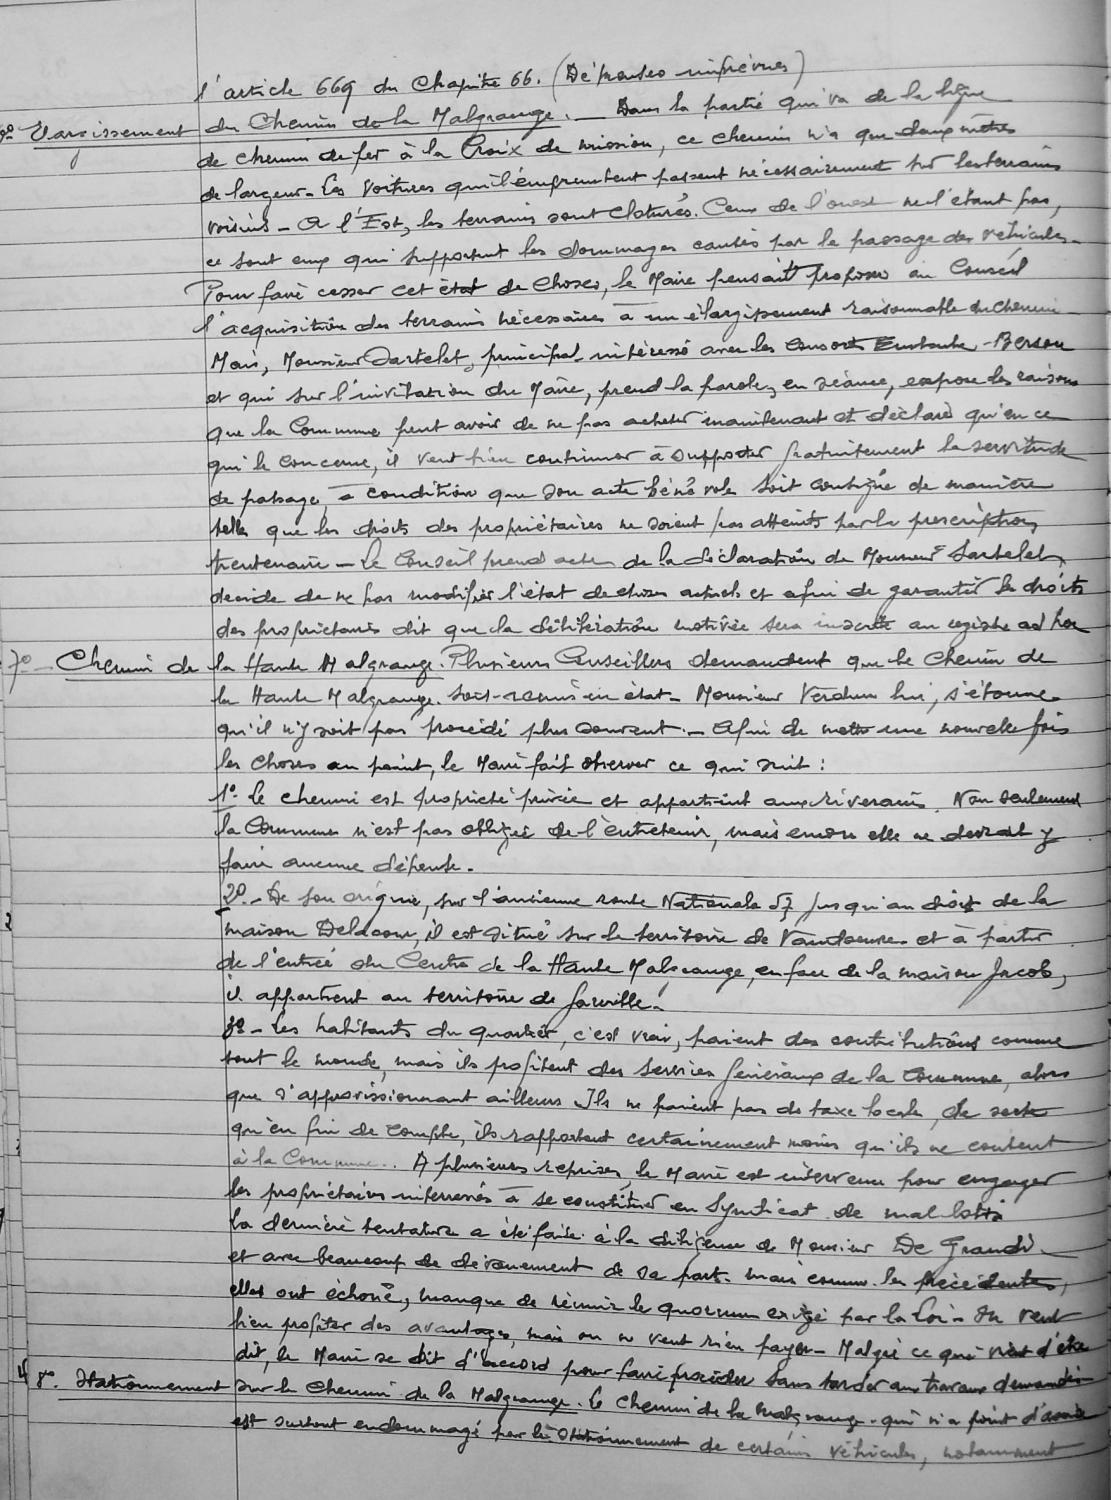 l'article 669 du Chapitre 66. (Dépenses imprévues)
9° Elargissement du Chemin de la Malgrange. — Dans la partie qui va de la ligne
de chemin de fer à la Croix de mission, ce chemin n'a que deux mètres
de largeur. Les voitures qui l'empruntent passent nécessairement sur les terrains
voisins - A l'Est, les terrains sont cloturés. Ceux de l'ouest ne l'étant pas,
ce sont eux qui supportent les dommages causés par le passage des véhicules.
Pour faire cesser cet état de choses, le Maire pensait proposer au Conseil
l'acquisition des terrains nécessaires à un élargissement raisonnable du chemin
Mais, Monsieur Dartelet, principal intéressé avec les Consorts
et qui sur l'invitation du Maire, prend la parole, en séance, expose les raisons
que la Commune peut avoir de ne pas acheter maintenant et déclare qu'en ce
qui le concerne, il veut bien continuer à supporter gratuitement la servitude
de passage, à condition que son acte bénévole soit consigné de manière
telle que les droits des propriétaires ne soient pas atteints par la prescription
trentenaire - Le Conseil prend acte de la déclaration de Monsieur
décide de ne pas modifier l'état de choses actuel et afin de garantir les droits
des propriétaires dit que la délibération motivée sera inscrite au registre ad hoc
7° - Chemin de la Haute Malgrange. Plusieurs Conseillers demandent que le Chemin de
la Haute Malgrange soit remis en état - Monsieur Verdun lui, s'étonne
qu'il n'y soit pas procédé plus souvent. - Afin de mettre une nouvelle fois
les choses au point, le Maire fait observer ce qui suit :
1° Le chemin est propriété privée et appartient aux riverains. Non seulement
la Commune n'est pas obligée de l'entretenir, mais encore elle ne devrait y
faire aucune dépense.
2° - De son origine, sur l'ancienne route Nationale 57 jusqu'au droit de la
maison Delacour, il est situé sur le territoire de Vandoeuvre et à partir
de l'entrée du Centre de la Haute Malgrange, en face de la maison Jacob,
il appartient au territoire de Jarville.
3° - Les habitants du quartier, c'est vrai, paient des contributions comme
tout le monde, mais ils profitent des services généraux de la Commune, alors
que s'approvisionnant ailleurs Ils ne paient pas de taxe locale, de sorte
qu'en fin de compte, ils rapportent certainement moins qu'ils ne coutent
à la Commune.. A plusieurs reprises, le Maire est intervenu pour engager
les propriétaires intéressés à se constituer en Syndicat de mal lotis
la dernière tentative a été faite à la diligence de Monsieur De Grandi
et avec beaucoup de dévouement de sa part. mais comme les précédentes,
elles ont échoué, manque de réunir le quorum exigé par la loi - On veut
bien profiter des avantages, mais on ne veut rien payer - Malgré ce qui vient d'être
dit, le Maire se dit d'accord pour faire procéder sans tarder aux travaux demandés
8°. Stationnement sur le Chemin de la Malgrange. Le Chemin de la Malgrange qui n'a point
est surtout endommagé par le stationnement de certains véhicules, notamment